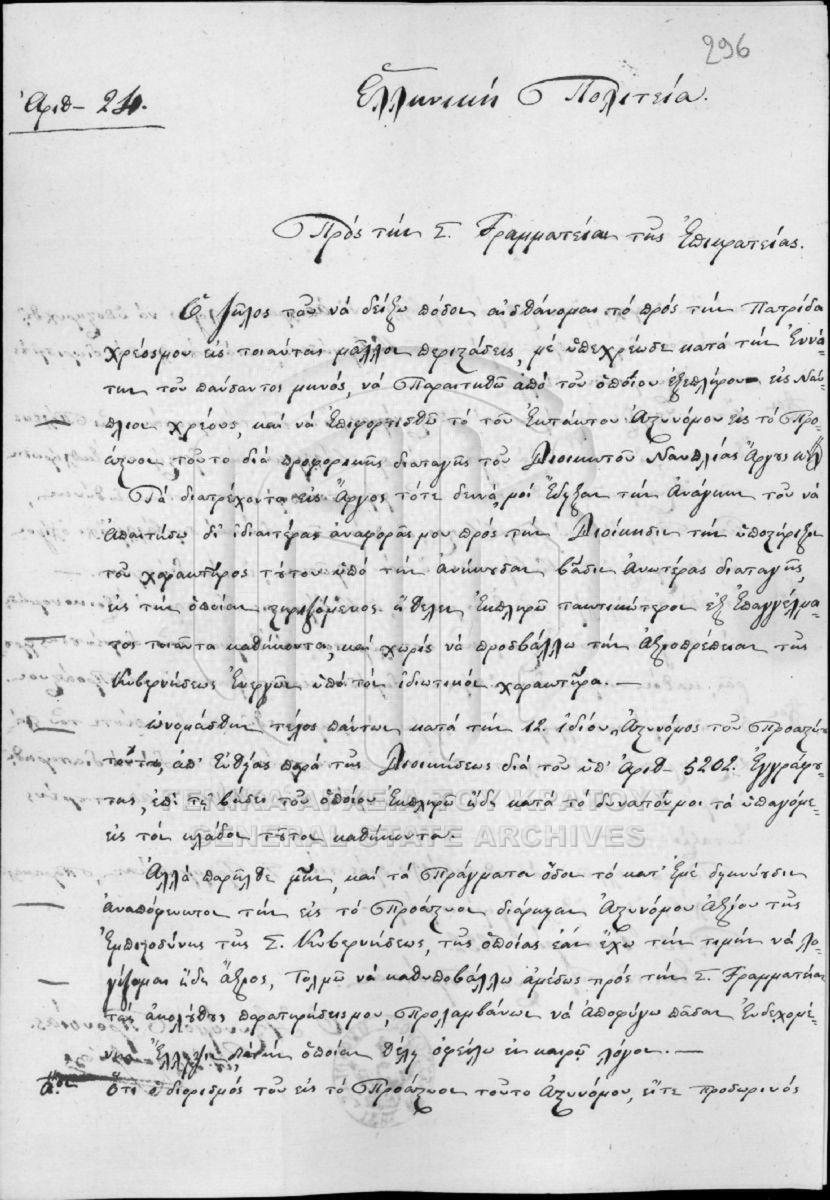 296
Ἀριθ- 24.
Ἑλληνική Πολιτεία.
Πρός τήν Σ. Γραμματείαν τῆς Ἐπικρατείας.
Ὁ ζῆλος τοῦ νά δείξω πόσον αἰσθάνομαι τό πρός τήν Πατρίδα
χρέος μου εἰς τοιαύτας μάλλον περιστάσεις, μέ ὑπεχρέωσε κατά τήν Ἐννά-
την τοῦ παύσαντος μηνός, νά παραιτηθῶ ἀπό τοῦ ὁποῖον ἐξεπλήρουν εἰς Ναύ-
πλιον χρέους, καί νά ἐπιφορτισθῶ τό τοῦ Ἐκτάκτου Ἀστυνόμου εἰς τό Προ-
άστυον τοῦτο διά προφορικῆς διαταγῆς τοῦ Διοικητοῦ Ναυπλίας Ἄργους
Τά διατρέχοντα εἰς Ἄργος τότε δεινά, μοί ἔδειξαν τήν ἀνάγκην τοῦ νά
ἀπαιτήσω δι' ἰδιαιτέρας ἀναφορᾶς μου πρός τήν Διοίκησιν τήν ὑποστήριξιν
τοῦ χαρακτῆρος τούτου ὑπό τήν ἀνήκουσαν βάσιν ἀνωτέρας διαταγῆς,
εἰς τήν ὁποίαν στηριζόμενος ἤθελεν ἐκπληρῶ τακτικώτερον ἐξ ἐπαγγέλμα-
τος τοιαῦτα καθήκοντα, καί χωρίς νά προσβάλλω τήν ἀξιοπρέπειαν τῆς
Κυβερνήσεως ἐνεργῶν ὑπό τόν ἰδιωτικόν χαρακτῆρα. —
ὠνομάσθην τέλος πάντων κατά τήν 12. ἰδίου Ἀστυνόμος τοῦ Προαστείου
τούτου, ἀπ' εὐθείας παρά τῆς Διοικήσεως διά τοῦ ὑπ' Ἀριθ 5202. Ἐγγράφου
της, ἐπί τῇ βάσει τοῦ ὁποίου ἐκπληρῶ ἤδη κατά τό δυνατόν μοι τά ὑπαγόμε-
εἰς τόν κλάδον τοῦτον καθήκοντα.
Ἀλλά παρῆλθε μήν, καί τά πράγματα ὅσον τό κατ' ἐμέ δεικνύουσιν
ἀναπόφευκτον τήν εἰς τό Προάστυον διάρκειαν Ἀστυνόμου ἀξίου τῆς
ἐμπιστοσύνης τῆς Σ. Κυβερνήσεως, τῆς ὁποίας ἐάν ἔχω τήν τιμήν νά λο-
γίζομαι ἤδη ἄξιος, τολμῶ νά καθυποβάλλω ἀμέσως πρός τήν Σ. Γραμματείαν
τάς ἀκολούθους παρατηρήσεις μου, προλαμβάνων νά ἀποφύγω πᾶσαν ἐνδεχομέ-
νην ἔλλειψιν ὁποίαν θέλω ὀφείλω ἐν καιρῷ λόγον. —
Α.ον Ὅτι ὁ διορισμός τοῦ εἰς τό Προάστυον τοῦτο Ἀστυνόμου, εἴτε προσωρινός
ΓΕΝΙΚΑ ΑΡΧΕΙΑ ΤΟΥ ΚΡΑΤΟΥΣ
GENERAL STATE ARCHIVES